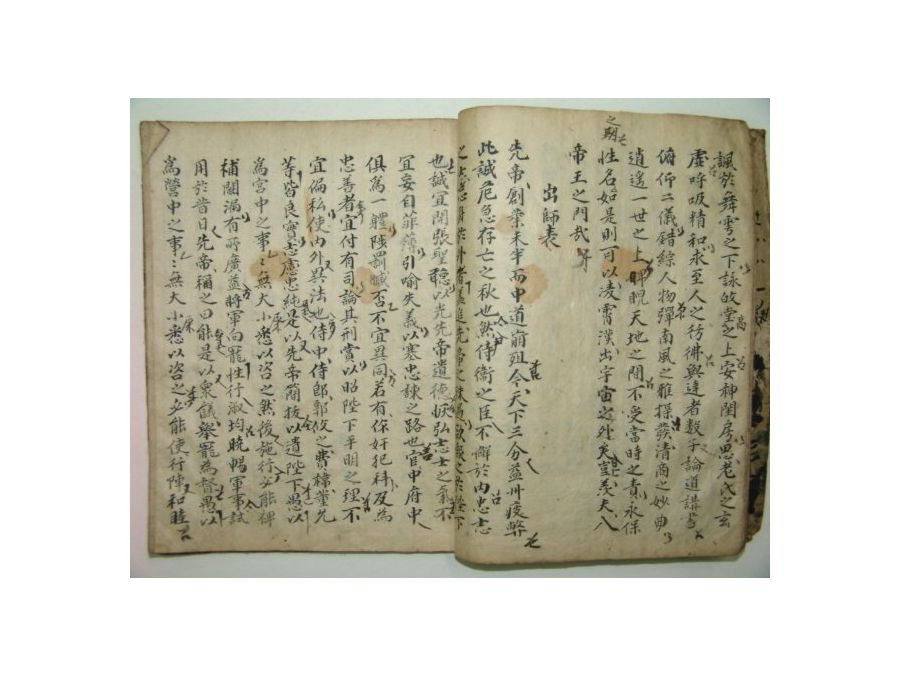 諷於舞雩之下詠故堂之上安神閨房思老氏之玄
虛呼吸精和求至人之彷彿與達者數子論道講書
俯仰二儀錯綜人物彈南風之雅操發清商之妙曲
逍遙一世之上睥睨天地之間不受當時之責永保
性名如是則可以凌霄漢出宇宙之外矣豈羨夫入
之期
帝王之門哉
出師表
先帝創業未半而中道崩殂今天下三分益州疲弊
此誠危急存亡之秋也然侍衛之臣不懈於內忠志
之
也誠宜開張聖聽以光先帝遺德恢弘志士之氣不
宜妄自菲薄引喻失義以塞忠諫之路也宮中府中
俱爲一體陟罰臧否不宜異同若有作奸犯科及爲
忠善者宜付有司論其刑賞以昭陛下平明之理不
宜偏私使內外異法也侍中侍郎郭攸之費禕董允
等皆良實志慮忠純是以先帝簡拔以遺陛下愚以
爲宮中之事事無大小悉以咨之然後施行必能裨
補闕漏有所廣益將軍向寵性行淑均曉暢軍事試
用於昔日先帝稱之曰能是以衆議舉寵爲督愚以
爲營中之事事無大小悉以咨之必能使行陣和睦